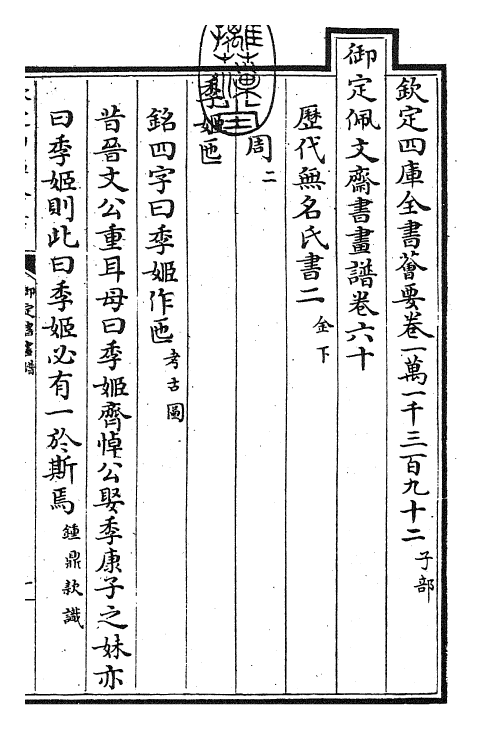 欽定四庫全書薈要卷一萬一千三百九十二子部
御定佩文齋書畫譜卷六十
歷代無名氏書二金下
周二
季姬匜
銘四字曰季姬作匜考古圖
昔晉文公重耳母曰季姬齊悼公娶季康子之妹亦
曰季姬則此曰季姬必有一於斯焉鍾鼎款識